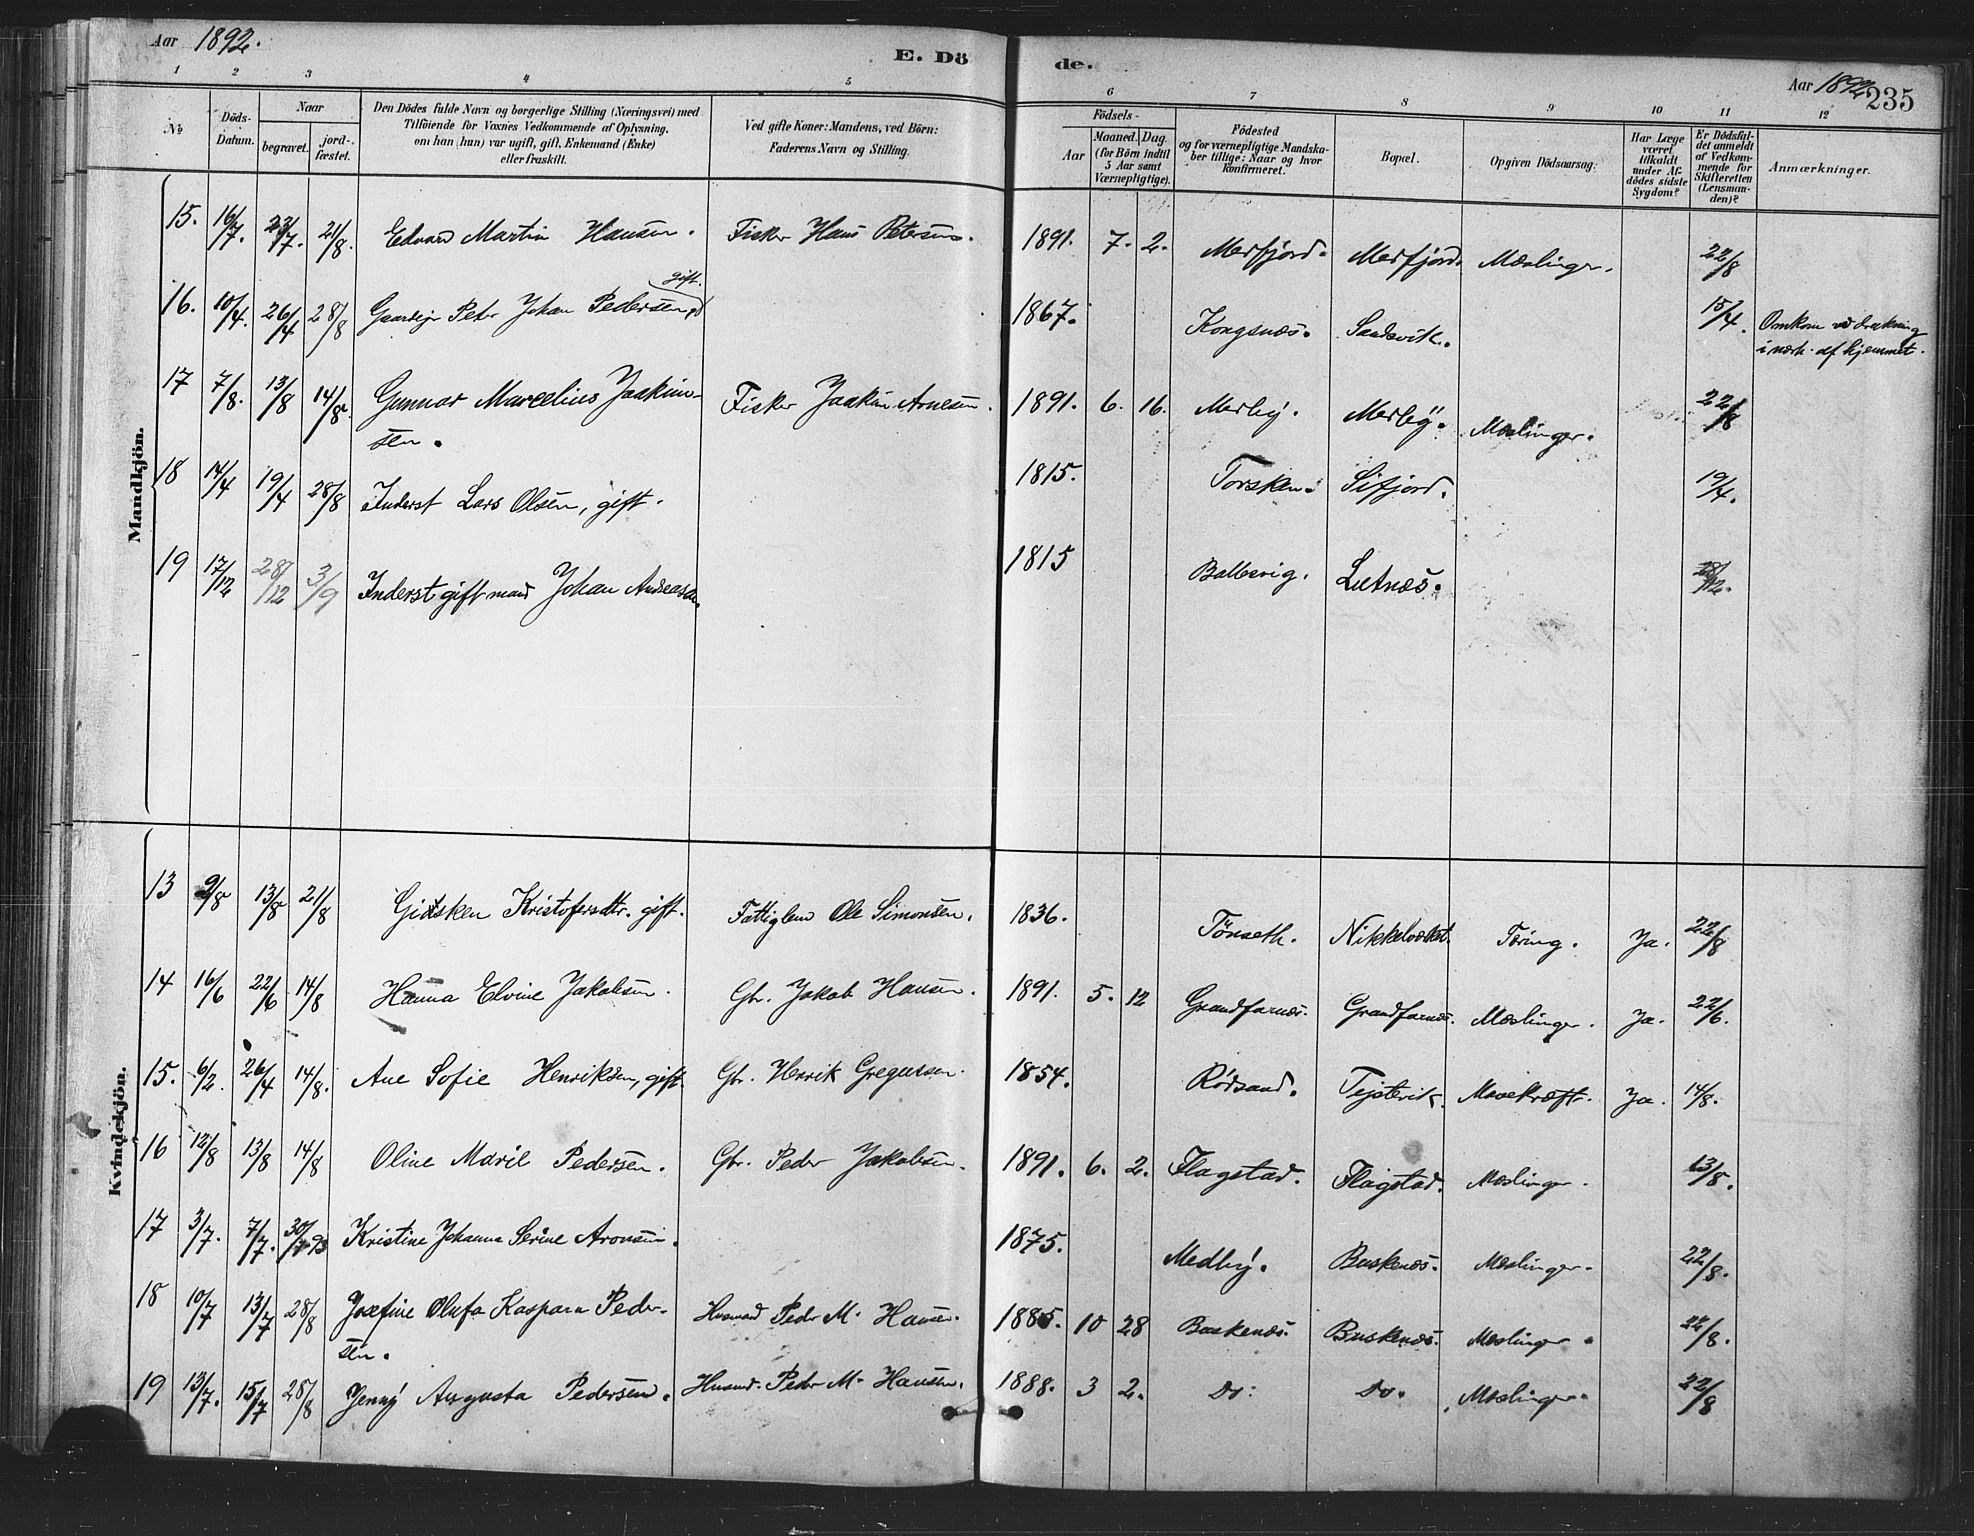 Aar 1892.
E. Dö
de.
Aar 1892
235
1 2 3 4 5 6 7 8 9 10 11 12
No
Döds-
Datum.
Naar
begravet.
jord-
fæstet.
Den Dödes fulde Navn og borgerlige Stilling (Næringsvei) med
Tilföiende for Voxnes Vedkommende af Oplysning,
om han (hun) var ugift, gift, Enkemand (Enke)
eller fraskilt.
Ved gifte Koner: Mandens, ved Börn:
Faderens Navn og Stilling.
Födsels-
Aar
Maaned. Dag.
(for Börn indtil
5 Aar samt
Værnepligtige).
Födested
og for værnepligtige Mandska-
ber tillige: Naar og hvor
konfirmeret.
Bopæl.
Opgiven Dödsaarsag:
Har Læge
været
tilkaldt
under Af-
dödes sidste
Sygdom?
Er Dödsfal-
det anmeldt
af Vedkom-
mende for
Skifteretten
(Lensman-
den)?
Anmærkninger.
Mandkjön.
15. 16/7. 23/7. 21/8. Edvard Martin Hansen. Fisker Hans Petersen. 1891. 7. 2. Mefjord. Mefjord. Mæslinger. 22/8
gift.
16. 10/4. 26/4 28/8 Gaardejr Peder Johan Pedersen 1867. Kongsnæs. Sandsvik. 15/4. Omkom ved drukning
i nærh. af hjemmet.
17 7/8. 13/8 14/8. Gunnar Marcelius Joakim- Fisker Joakim Arnesen. 1891. 6. 16. Medby. Medby. Mæslinger. 22/8
sen.
18 14/4 19/4 28/8 Inderst Lars Olsen, gift. 1815. Torsken. Sifjord. 19/4.
19 17/12 28/12 3/9 Inderst gift mand Johan Andreasen. 1815 Ballesvig. Lutnæs. 28/12.
Kvindekjön.
13 9/8 13/8 21/8 Gidsken Kristofersdtr. gift. Fattiglem Ole Simonsen. 1836. Tönseth. Nikkelværket. Tæring. Ja. 22/8
14 16/6 22/6 14/8 Hanna Elvine Jakobsen. Gbr. Jakob Hansen. 1891. 5. 12 Grandfarnæs. Grandfarnæs. Mæslinger. Ja. 22/6.
15. 6/2. 26/4 14/8. Ane Sofie Henriksen, gift Gbr. Henrik Gregussen. 1854. Rödsand. Tejstevik. Mavekræft. Ja. 14/8.
16 12/8 13/8 14/8 Oline Marie Pedersen. Gbr. Peder Jakobsen. 1891. 6. 2. Flagstad. Flagstad. Mæslinger. 13/8.
17 3/7. 7/7. 30/7 93 Kristine Johanna Serine Aronsen. 1875. Medby. Buskenæs. Mæslinger. 22/8.
18 10/7 13/7 28/8 Josefine Olufa Kaspara Peder- Husmand Peder M. Hansen. 1885. 10 28 Buskenæs. Buskenæs. Mæslinger. 22/8.
sen.
19 13/7. 15/7 28/8 Jenny Augusta Pedersen. Husmd. Peder M. Hansen. 1888. 3 2. Do. Do. Mæslinger. 22/8